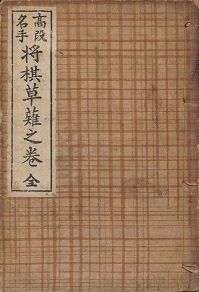 高段
名手
将棋草薙之巻 全